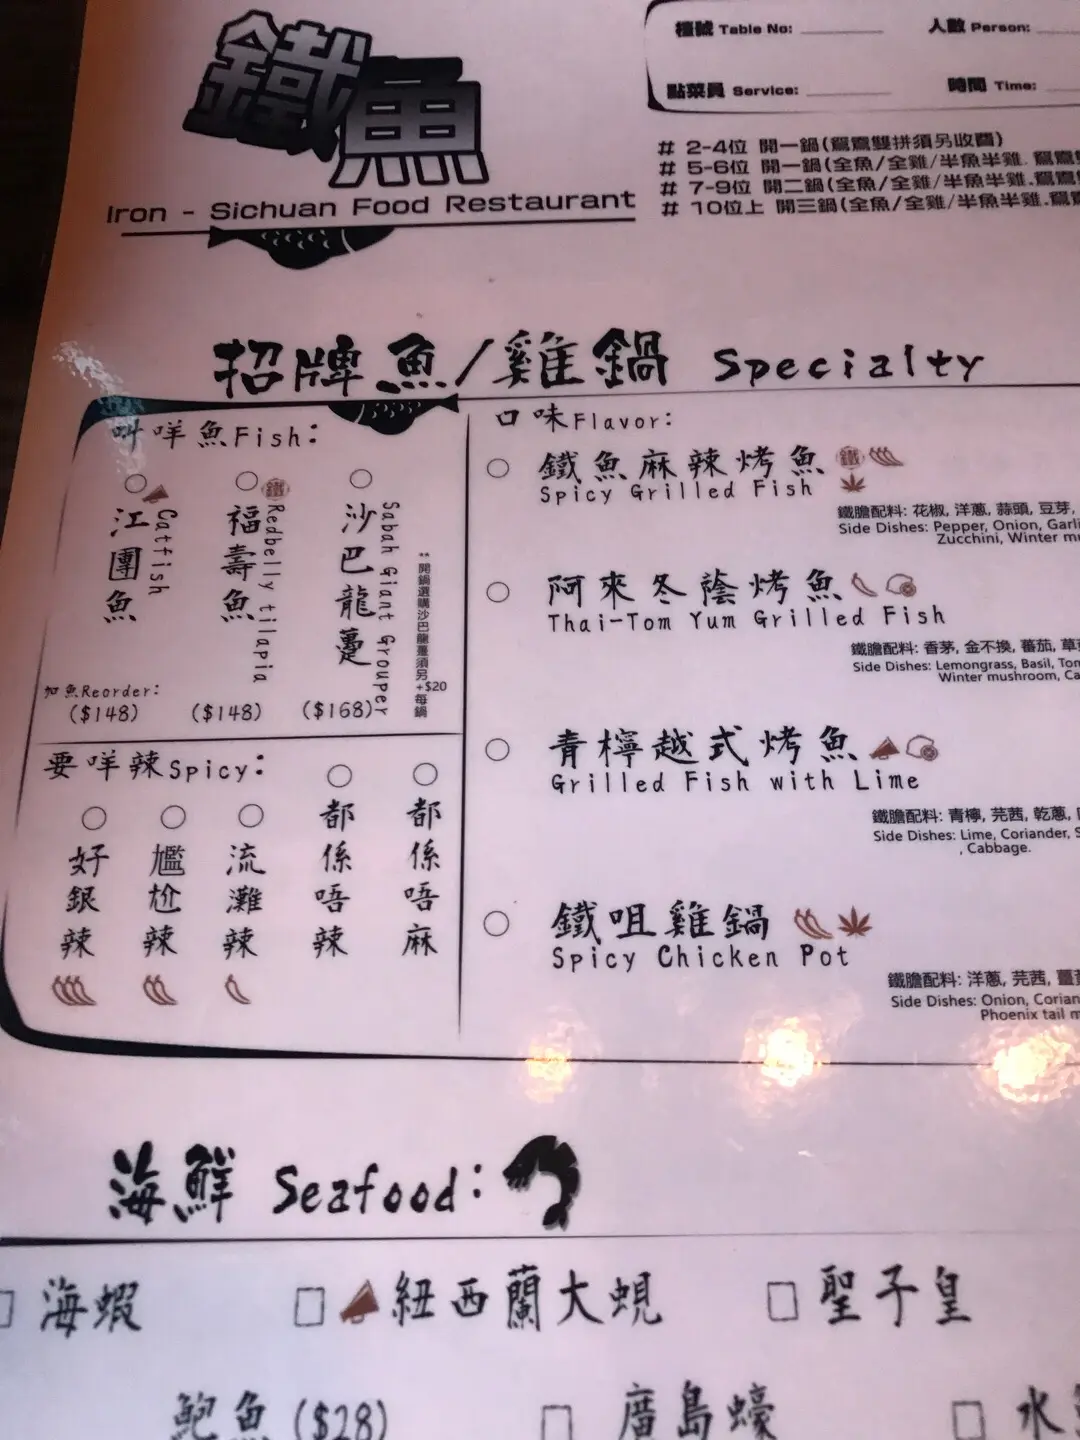 鐵魚
Iron - Sichuan Food Restaurant
檯號 Table No:
人數 Person:
點菜員 Service:
時間 Time:
# 2-4位 開一鍋(鴛鴦雙拼須另收費)
# 5-6位 開一鍋(全魚/全雞/半魚半雞.鴛鴦
# 7-9位 開二鍋(全魚/全雞/半魚半雞.鴛鴦
# 10位上 開三鍋(全魚/全雞/半魚半雞.鴛
招牌魚/雞鍋 Specialty
叫咩魚Fish:
江團魚
Catfish
福壽魚
Redbelly tilapia
沙巴龍躉
Sabah Giant Grouper
**開鍋選購沙巴龍躉須另+$20每鍋
加魚Reorder:
($148)
($148)
($168)
要咩辣Spicy:
好銀辣
尷尬辣
流灘辣
都係唔辣
都係唔麻
口味Flavor:
鐵魚麻辣烤魚
Spicy Grilled Fish
鐵膽配料: 花椒, 洋蔥, 蒜頭, 豆芽,
Side Dishes: Pepper, Onion, Garli
Zucchini, Winter mu
阿來冬蔭烤魚
Thai-Tom Yum Grilled Fish
鐵膽配料: 香茅, 金不換, 蕃茄, 草
Side Dishes: Lemongrass, Basil, Tom
Winter mushroom, Ca
青檸越式烤魚
Grilled Fish with Lime
鐵膽配料: 青檸, 芫茜, 乾蔥,
Side Dishes: Lime, Coriander, S
, Cabbage.
鐵咀雞鍋
Spicy Chicken Pot
鐵膽配料: 洋蔥, 芫茜, 薑
Side Dishes: Onion, Corian
Phoenix tail m
海鮮 Seafood:
海蝦
紐西蘭大蜆
聖子皇
鮑魚($28)
廣島蠔
水